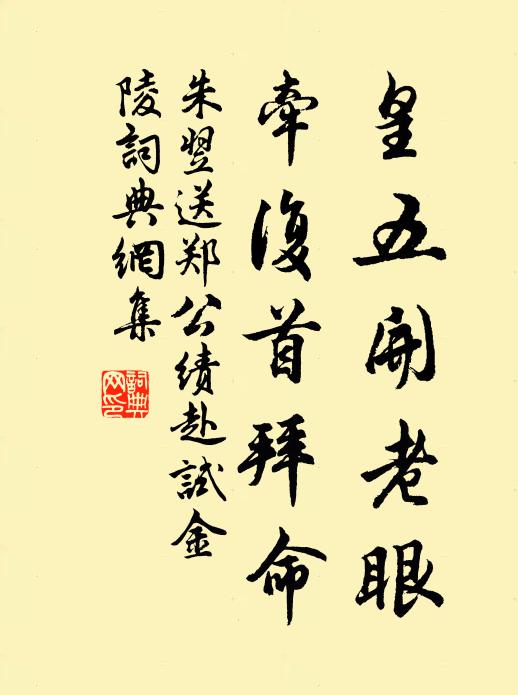 皇五開老眼
牽復首拜命
朱翌送郑公绩赴試金
陵詞典網集
詞典
网印